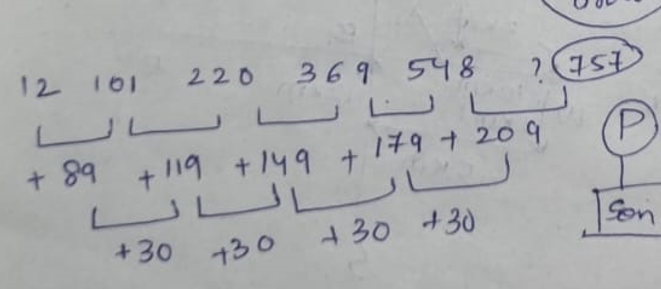 12 101 220 369 548 ? 757
+ 89 + 119 + 149 + 179 + 209
+ 30 + 30 + 30 + 30
P
Son